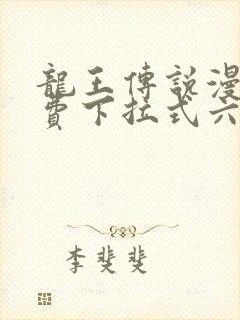 龍王傳說漫
費下拉式六
李斐斐